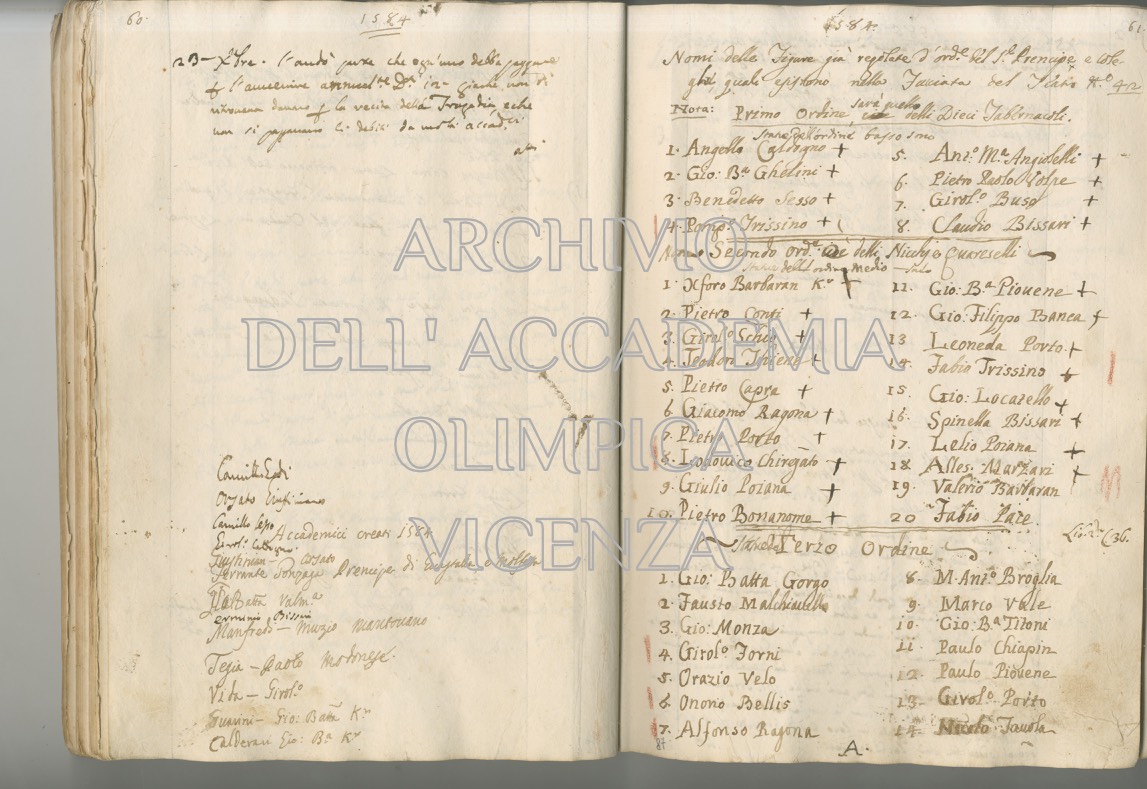 60.
1584
23 — che ogn'uno debba pagare
l'annisene
ritrovava danaro la recita della Tragedia, e che
non si pagavano li debiti da molti accad.ci
Camillo
Orsato Giustiniano
Camillo Sesso
Accademici creati 1584
Giustinian — Orsato
Ferrante Gonzaga Prencipe di
Gio Batta Valm.a
Bissari
Manfredi — Muzio Mantovano
Tegia — Paolo Modonese.
Vida — Girol.o
Guarini — Gio: Batta K.r
Calderari Gio: B.a K.r
1584.
61
Nomi delle Figure già regolate d'ord.e del S.r Prencipe e Cole-
ghi, quale esistono nella Facciata del Teatro N.o 42
Nota: Primo Ordine sarà quello delli Dieci Tabernacoli.
Statue dell'ordine basso sono
1. Angello Caldogno +
2. Gio: B.a Ghelini +
3. Benedetto Sesso +
4. Pomp.o Trissino +
5. Ant.o M.a Angiolelli +
6. Pietro Paolo Volpe +
7. Girol.o Buso +
8. Claudio Bissari +
Secondo ord.e delli Nichj e Quareselli
Statue dell'ordine Medio
1. Xforo Barbaran K.r +
2. Pietro Conti +
3. Girol.o Schio +
4. Teodoro Thiene +
5. Pietro Capra +
6 Giacomo Ragona +
7. Pietro Porto +
8. Lodovico Chiregato +
9. Giulio Poiana +
10. Pietro Bonanome +
11. Gio: B.a Piovene +
12. Gio: Filippo Banca +
13 Leoneda Porto +
14. Fabio Trissino +
15 Gio: Locatello +
16. Spinella Bissari +
17. Lelio Poiana +
18 Alles. Marzari +
19. Valerio Barbaran
20 Fabio Pace.
Terzo Ordine
1. Gio: Batta Gorgo
2. Fausto Malchiavello
3. Gio: Monza
4. Girol.o Forni
5. Orazio Velo
6 Onorio Bellis
7. Alfonso Ragona
8. M. Ant.o Broglia
9. Marco Vale
10. Gio: B.a Titoni
11. Paulo Chiapin
12. Paulo Piovene
13. Girol.o Porto
14. Nicolo Tavola
87
A.
ARCHIVIO
DELL' ACCADEMIA
OLIMPICA
VICENZA